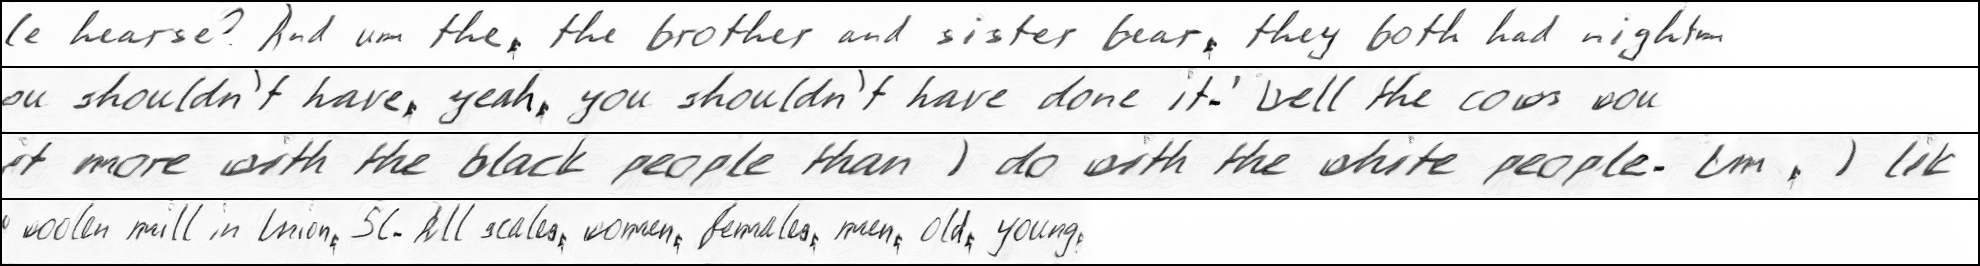 le hearse? And um the, the brother and sister bear, they both had nightm
ou shouldn't have, yeah, you shouldn't have done it.' Well the cows wou
it more with the black people than I do with the white people. Um, I lik
woolen mill in Union, SC. All scales, women, females, men, old, young,